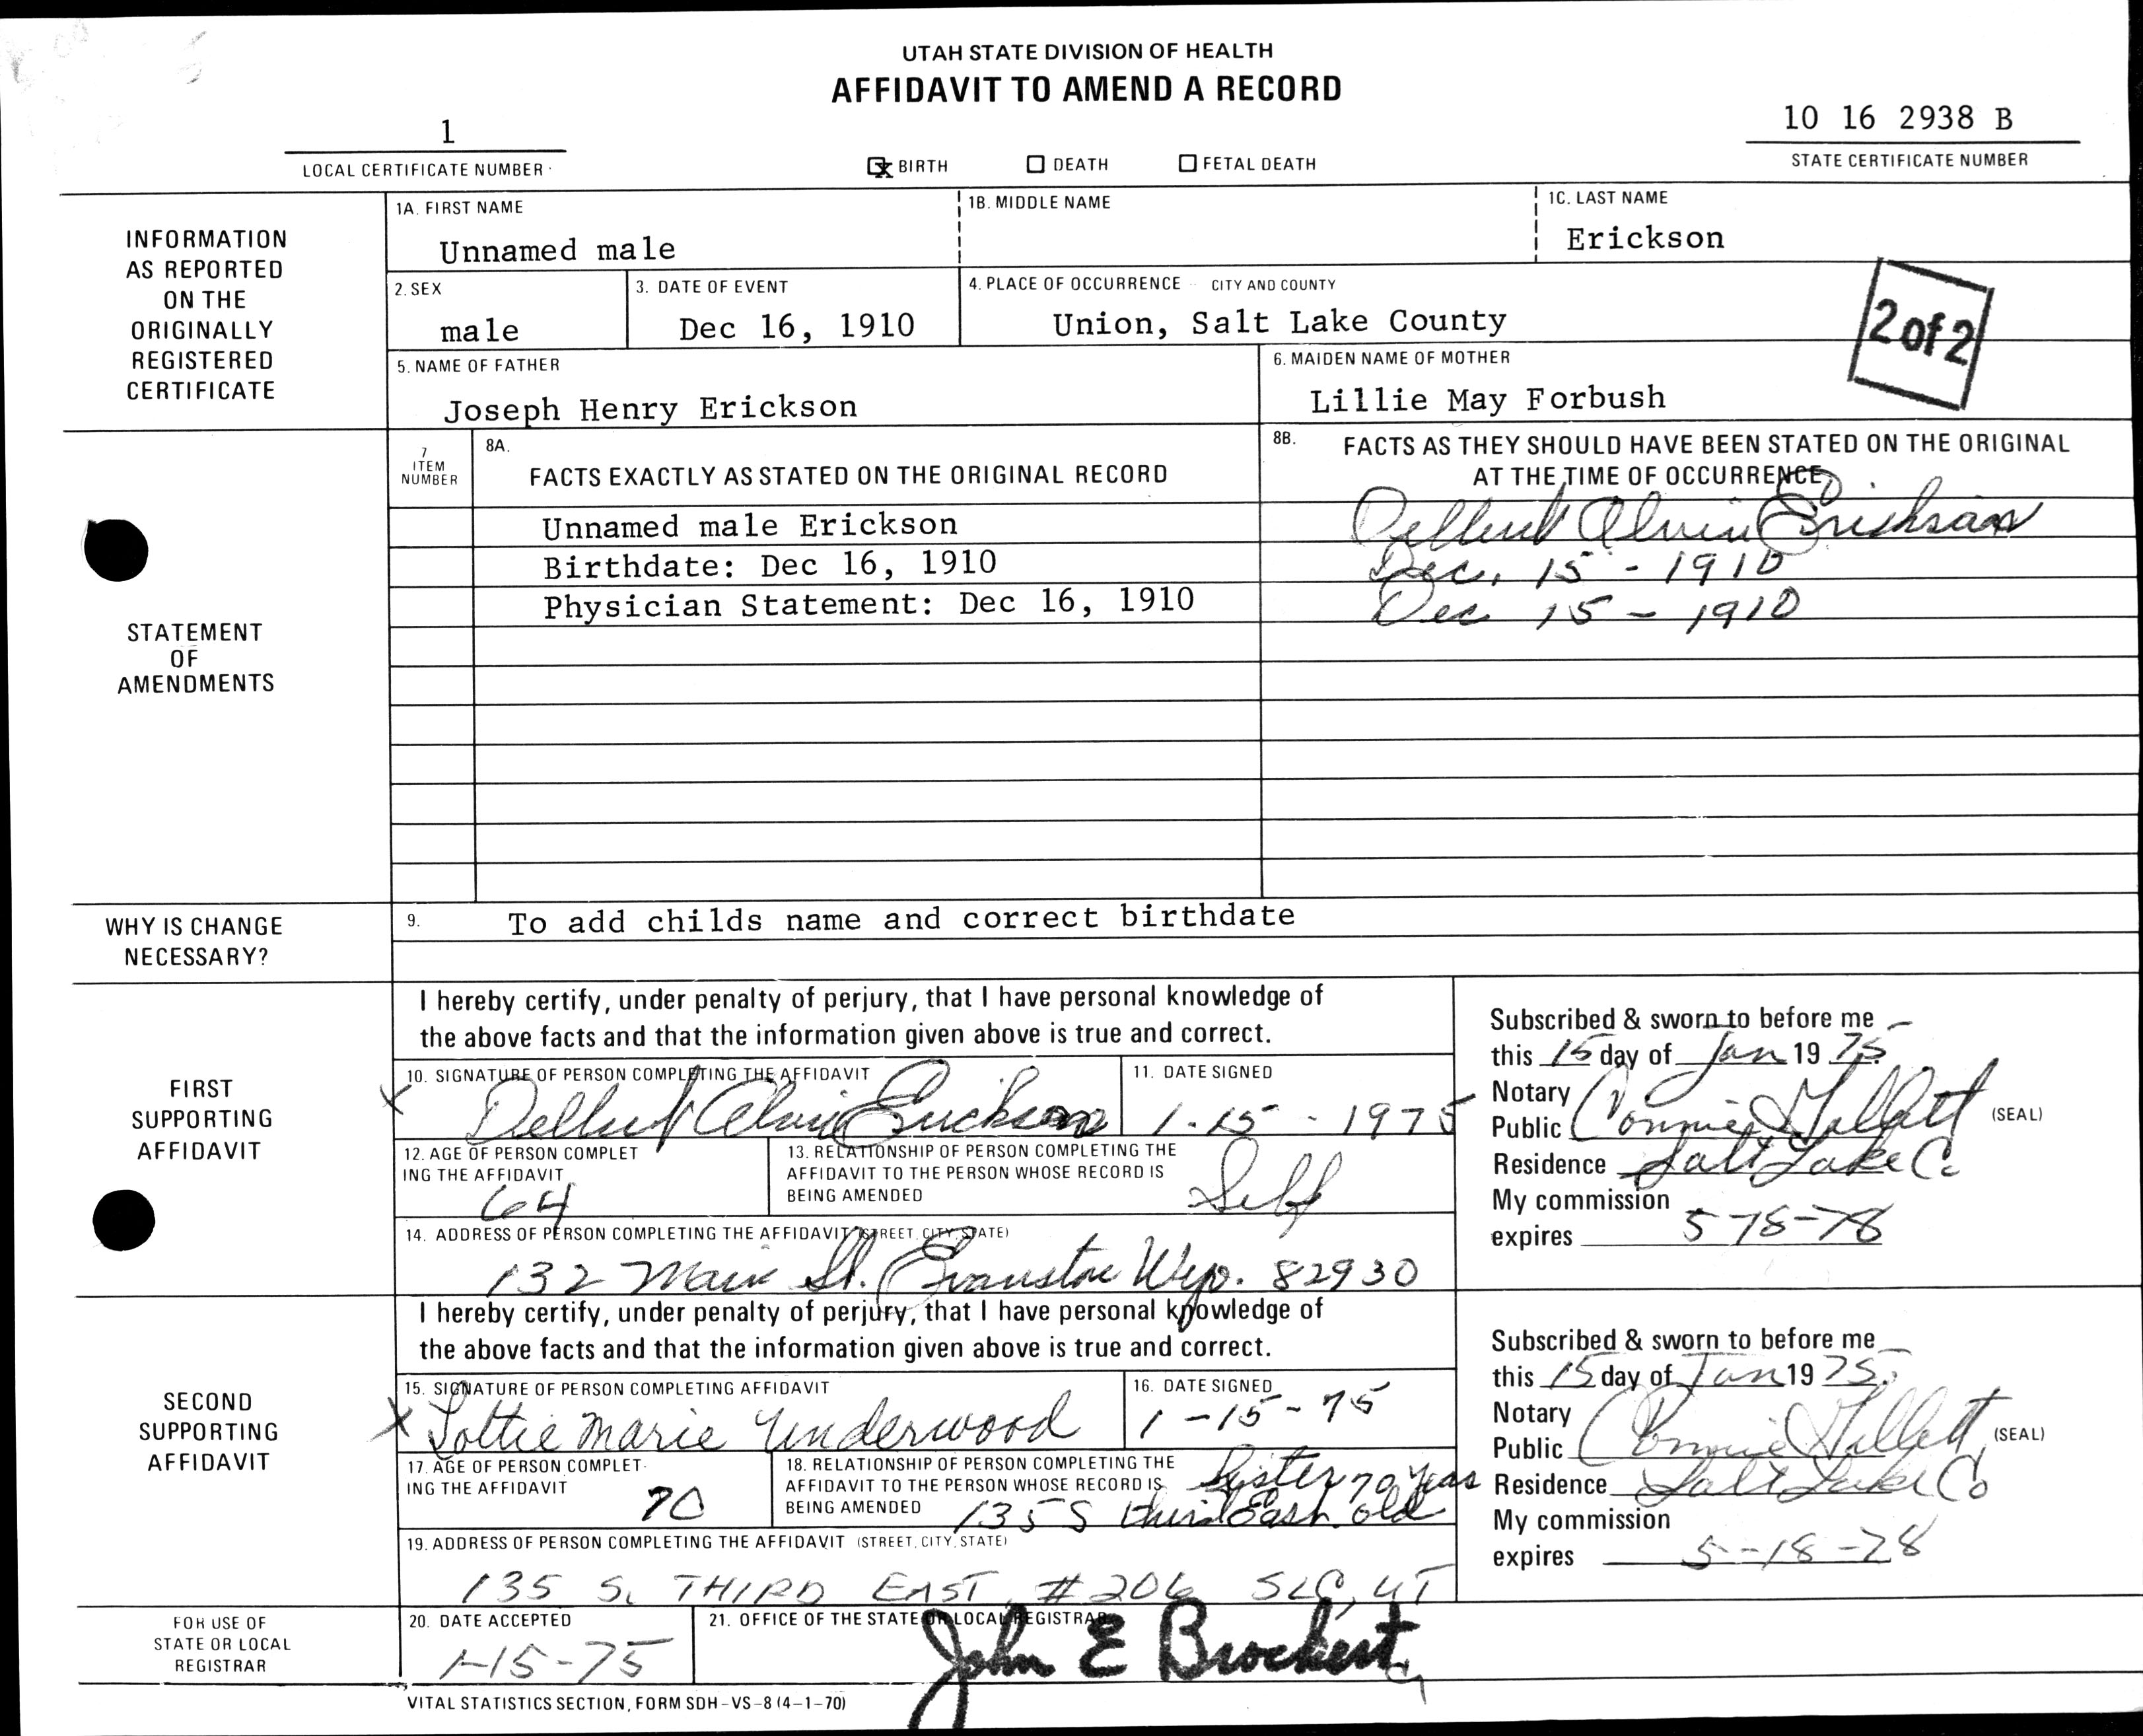 UTAH STATE DIVISION OF HEALTH
AFFIDAVIT TO AMEND A RECORD
1
LOCAL CERTIFICATE NUMBER
X BIRTH DEATH FETAL DEATH
10 16 2938 B
STATE CERTIFICATE NUMBER
INFORMATION AS REPORTED ON THE ORIGINALLY REGISTERED CERTIFICATE
1A. FIRST NAME
Unnamed male
1B. MIDDLE NAME
1C. LAST NAME
Erickson
2. SEX
male
3. DATE OF EVENT
Dec 16, 1910
4. PLACE OF OCCURRENCE CITY AND COUNTY
Union, Salt Lake County
2 of 2
5. NAME OF FATHER
Joseph Henry Erickson
6. MAIDEN NAME OF MOTHER
Lillie May Forbush
STATEMENT OF AMENDMENTS
7 ITEM NUMBER
8A. FACTS EXACTLY AS STATED ON THE ORIGINAL RECORD
8B. FACTS AS THEY SHOULD HAVE BEEN STATED ON THE ORIGINAL
AT THE TIME OF OCCURRENCE
Unnamed male Erickson
Alvin Erickson
Birthdate: Dec 16, 1910
Dec. 15 - 1910
Physician Statement: Dec 16, 1910
Dec 15 - 1910
WHY IS CHANGE NECESSARY?
9. To add childs name and correct birthdate
FIRST SUPPORTING AFFIDAVIT
I hereby certify, under penalty of perjury, that I have personal knowledge of
the above facts and that the information given above is true and correct.
10. SIGNATURE OF PERSON COMPLETING THE AFFIDAVIT
X Alvin Erickson
11. DATE SIGNED
1-15-1975
12. AGE OF PERSON COMPLETING THE AFFIDAVIT
64
13. RELATIONSHIP OF PERSON COMPLETING THE
AFFIDAVIT TO THE PERSON WHOSE RECORD IS
BEING AMENDED
Self
14. ADDRESS OF PERSON COMPLETING THE AFFIDAVIT (STREET, CITY, STATE)
132 Main St. Evanston Wyo. 82930
Subscribed & sworn to before me
this 15 day of Jan 19 75
Notary
Public Connie
(SEAL)
Residence Salt Lake Co
My commission
expires 5-18-78
SECOND SUPPORTING AFFIDAVIT
I hereby certify, under penalty of perjury, that I have personal knowledge of
the above facts and that the information given above is true and correct.
15. SIGNATURE OF PERSON COMPLETING AFFIDAVIT
X Lottie Marie Underwood
16. DATE SIGNED
1-15-75
17. AGE OF PERSON COMPLETING THE AFFIDAVIT
70
18. RELATIONSHIP OF PERSON COMPLETING THE
AFFIDAVIT TO THE PERSON WHOSE RECORD IS
BEING AMENDED
Sister 70 years old
135 S third East
19. ADDRESS OF PERSON COMPLETING THE AFFIDAVIT (STREET, CITY, STATE)
135 S. THIRD EAST, #206 SLC, UT
Subscribed & sworn to before me
this 15 day of Jan 19 75.
Notary
Public Connie
(SEAL)
Residence Salt Lake Co
My commission
expires 5-18-78
FOR USE OF STATE OR LOCAL REGISTRAR
20. DATE ACCEPTED
1-15-75
21. OFFICE OF THE STATE OR LOCAL REGISTRAR
John E Brockert
VITAL STATISTICS SECTION, FORM SDH-VS-8 (4-1-70)